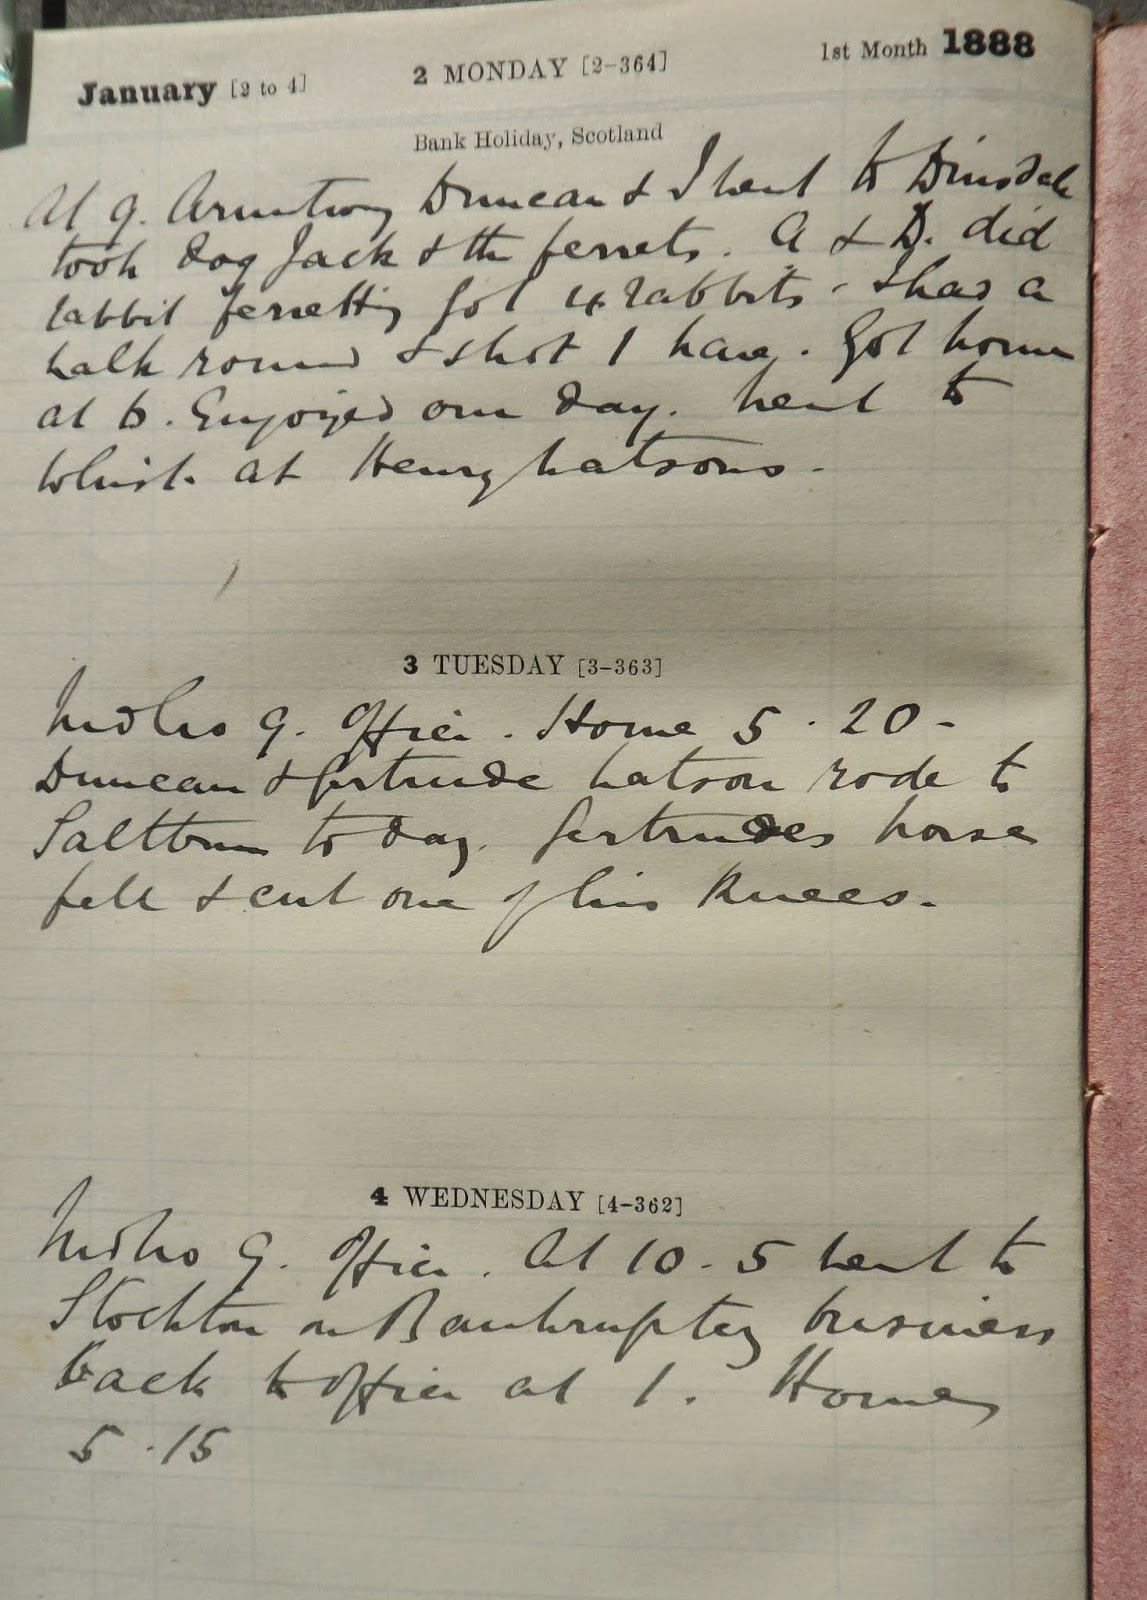 January [2 to 4] 2 MONDAY [2-364] 1st Month 1888
Bank Holiday, Scotland
At 9. Armstrong Duncan & I went to Dinsdale
took dog Jack & the ferrets. A & D. did
rabbit ferretting got 4 rabbits - I has a
walk round & shot 1 hare. Got home
at 6. Enjoyed our day. went to
Whist at Henry Watsons -
3 TUESDAY [3-363]
9. Office. Home 5.20 -
Duncan & Gertrude Watson rode to
Saltburn to day. Gertrudes horse
fell & cut one of his knees.
4 WEDNESDAY [4-362]
9. Office. At 10-5 went to
Stockton on Bankruptcy business
back to office at 1. Home
5.15